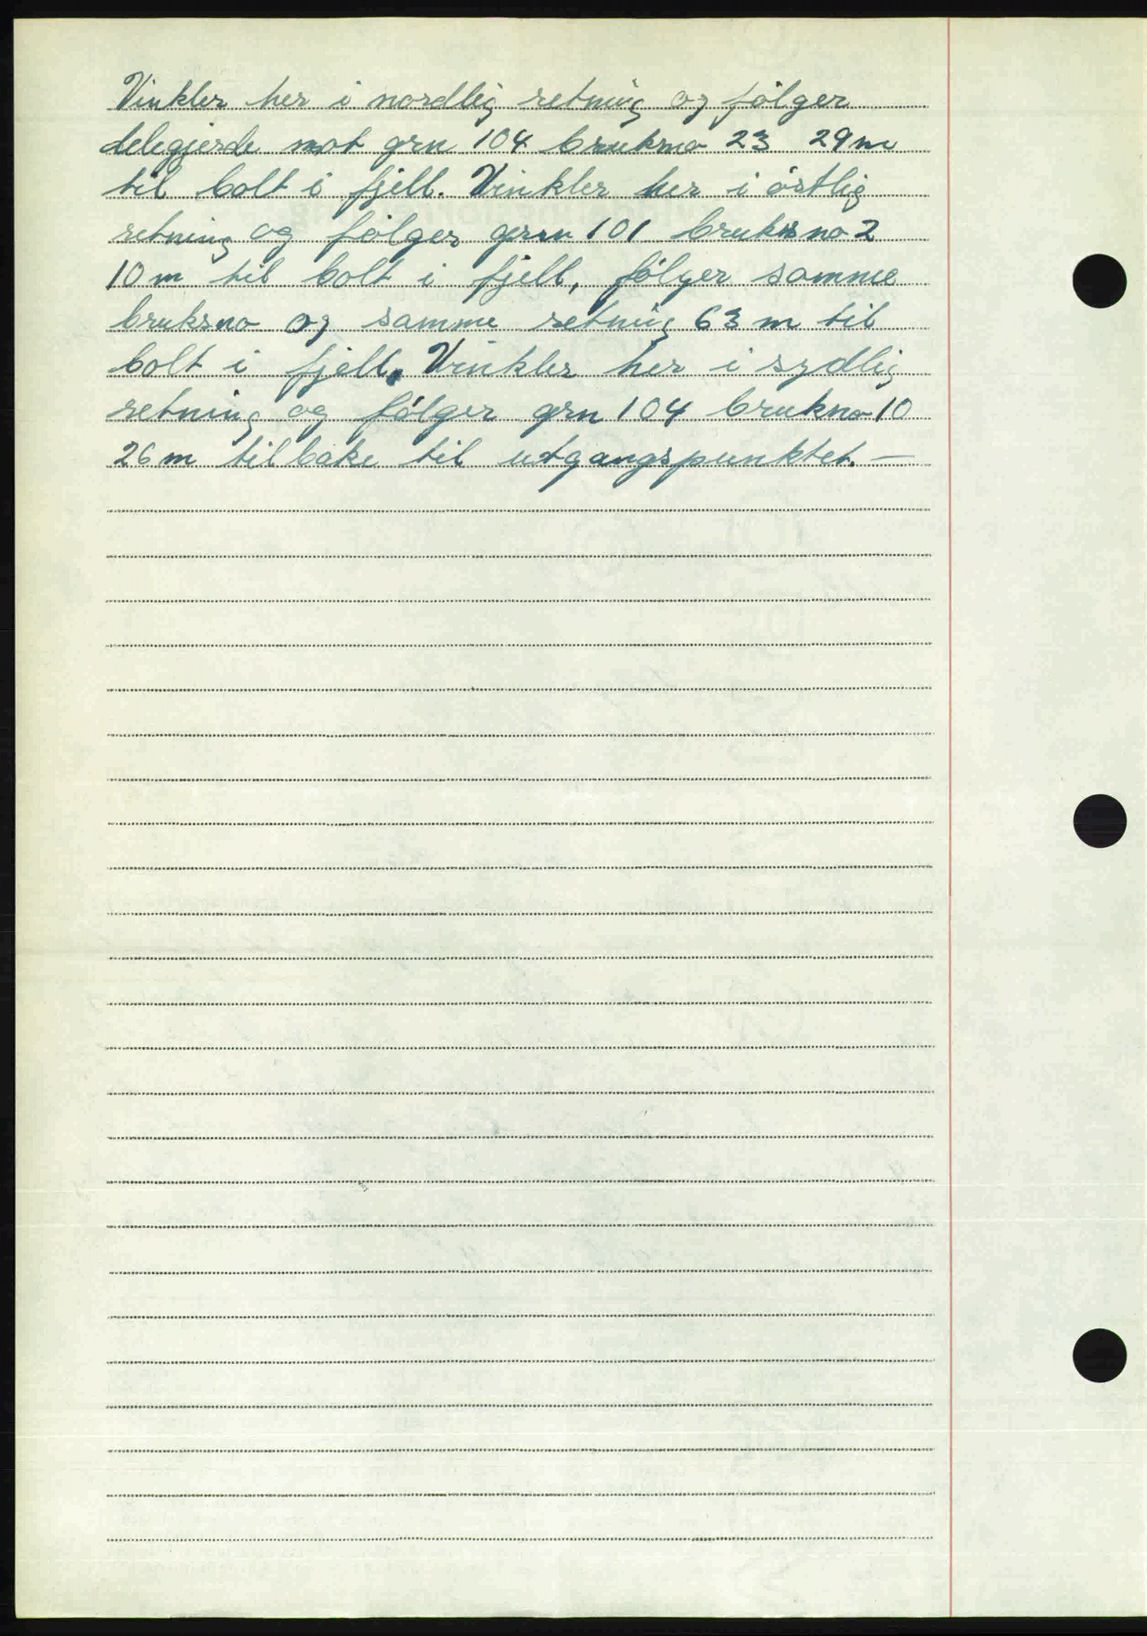 Vinkler her i nordlig retning og følger
delegjerde mot grn 104 bruksno 23 29 m
til bolt i fjell. Vinkler her i östlig
retning og følger grn 101 bruksno 2
10 m til bolt i fjell, følger samme
bruksno og samme retning 63 m til
bolt i fjell. Vinkler her i sydlig
retning og følger grn 104 bruksno 10
26 m tilbake til utgangspunktet. —